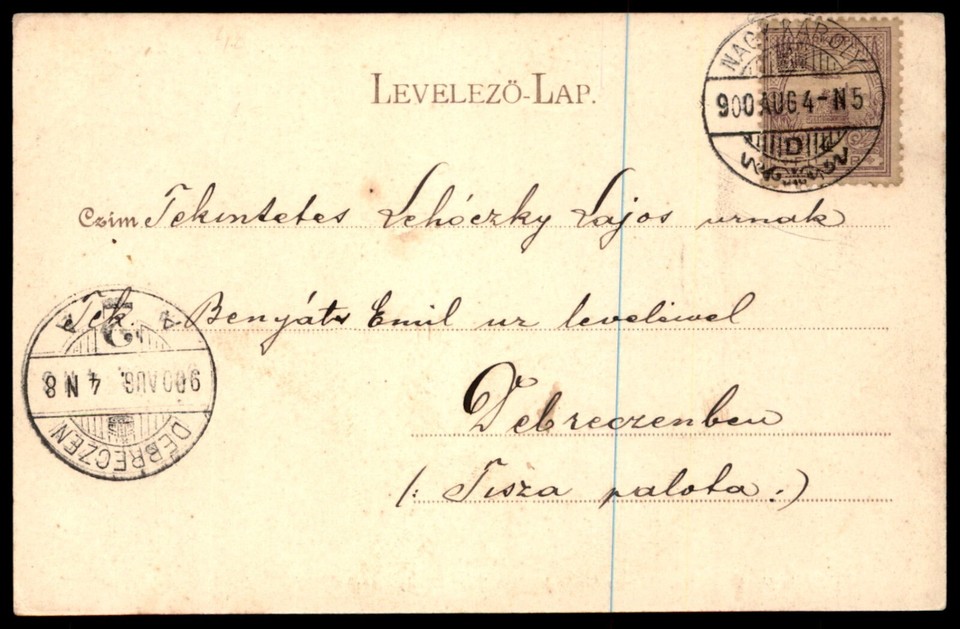 LEVELEZŐ-LAP.
NAGY-KÁROLY
900 AUG 4-N5
D
Czim Tekintetes Lehóczky Lajos urnak
Tek. Benyáts Emil ur leveleivel
Debreczenben
(: Tisza palota :)
DEBRECZEN
900 AUG. 4 N 8